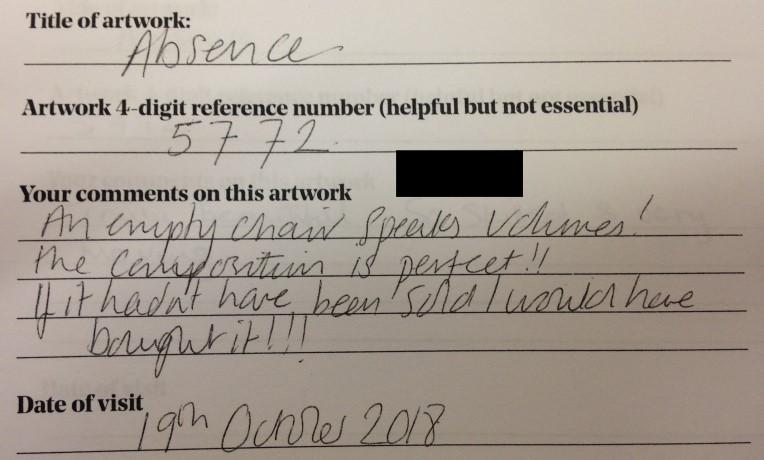 Title of artwork:
Absence
Artwork 4-digit reference number (helpful but not essential)
5772
Your comments on this artwork
An empty chair speaks volumes!
the composition is perfect!!
If it hadnt have been sold I would have
bought it!!!
Date of visit
19th October 2018